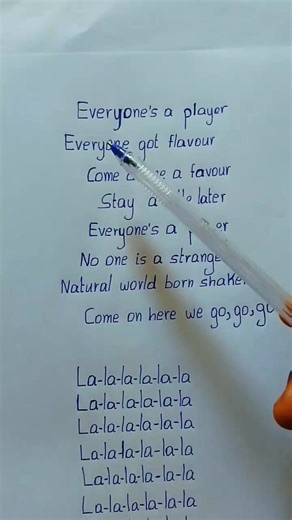 Everyone's a player
Everyone got flavour
Come a favour
Stay later
Everyone's a
No one is a strange
Natural world born shake
Come on here we go, go, go
La-la-la-la-la-la
La-la-la-la-la-la
La-la-la-la-la-la
La-la-la-la-la-la
La-la-la-la-la-la
La-la-la-la-la-la